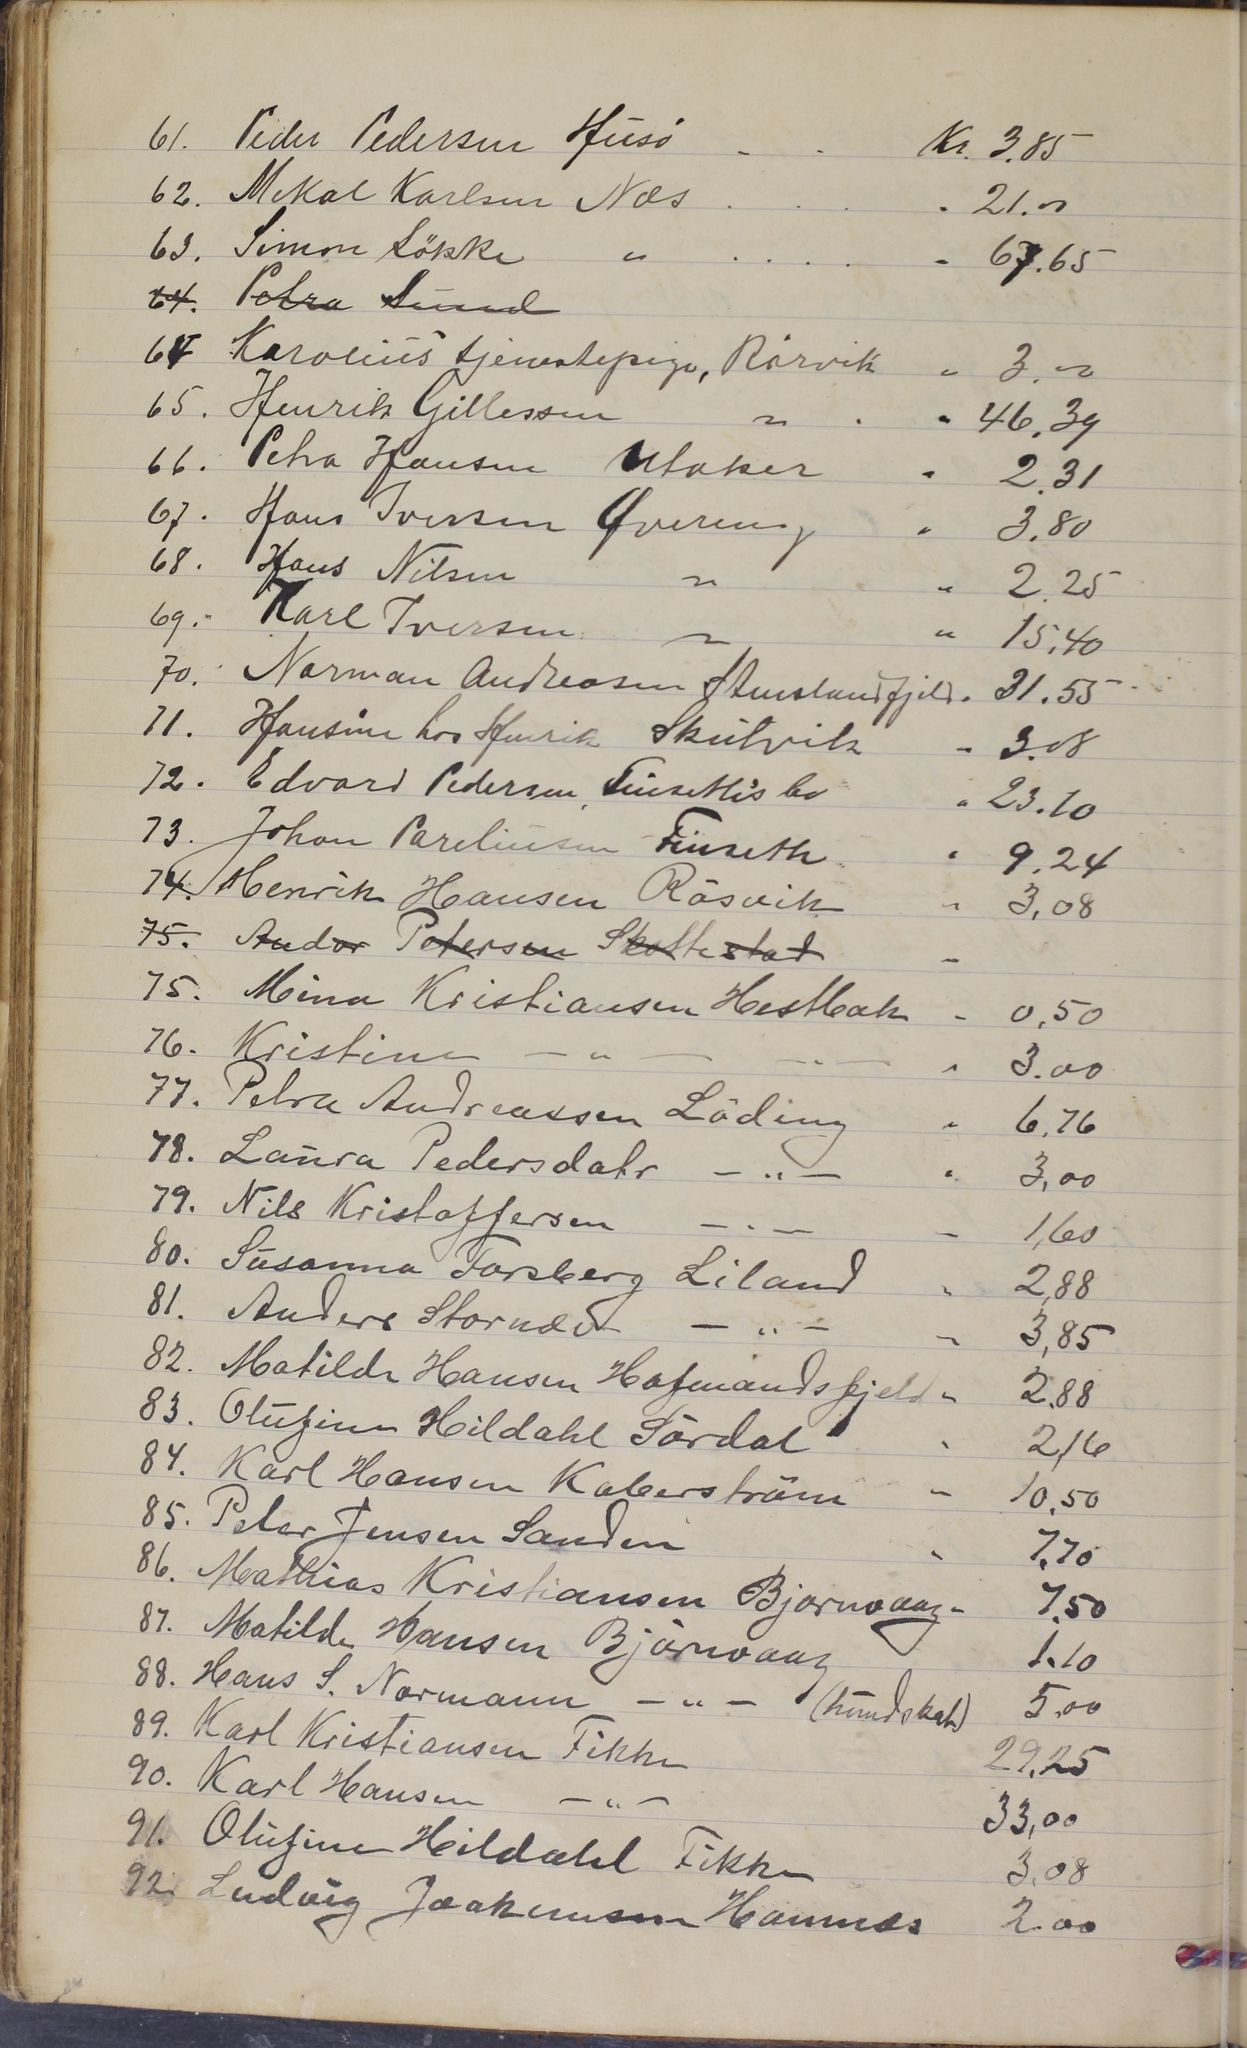 61. Peder Pedersen Husö - - Kr. 3.85
62. Mikal Karlsen Næs . . . . 21.00
63. Simon Løkke " . . . . - 67.65
64. Petra Sund
64 Karolius tjenestepige, Rørvik " 3.00
65. Henrik Gillessen " . " 46.39
66. Petra Hansen Utaker " 2.31
67. Hans Iversen Qvereng " 3.80
68. Hans Nilsen " " 2.25
69. Karl Iversen " " 15.40
70. Norman Andreasen fjeld. 31.55
71. Hansine hos Henrik Skutvik " 3.08
72. Edvard Pedersen, " 23.10
73. Johan Pareliusen Finseth " 9.24
74. Henrik Hansen Røsvik " 3,08
75. Andor Petersen Skottestad "
75. Mina Kristiansen Hestbak - 0,50
76. Kristine - " - - " - " 3.00
77. Petra Andreassen Löding " 6,76
78. Laura Pedersdatr - " - " 3,00
79. Nils Kristoffersen - " - - 1,60
80. Susanna Forsberg Liland " 2,88
81. Anders Stornæs - " - " 3,85
82. Matilde Hansen Hafmandsfjeld " 2.88
83. Olufine Hildahl Sördal " 2,16
84. Karl Hansen Koberström " 10,50
85. Peter Jensen Sandin " 7,70
86. Mathias Kristiansen Bjørnvaag - 7,50
87. Matilde Hansen Bjørnvaag 1.10
88. Hans S. Normann - " - (hundskat) 5,00
89. Karl Kristiansen Fikke 29,25
90. Karl Hansen - " - 33,00
91. Olufine Hildahl Fikke 3,08
92. Ludvig Joakimsen Hamnes 2.00